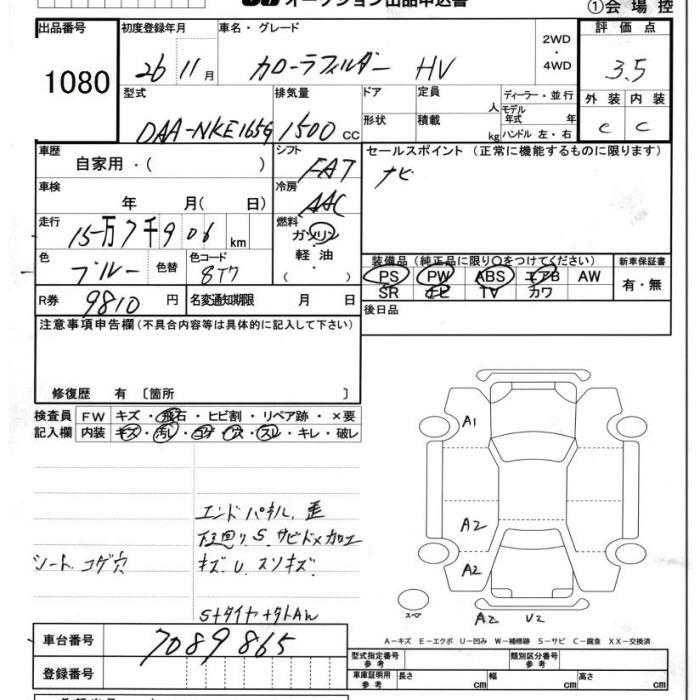 オークション出品申込書
①会場控
出品番号
1080
初度登録年月
26 11月
車名・グレード
カローラフィルダー HV
2WD
・
4WD
評価点
3.5
外装 内装
c c
型式
DAA-NKE165G
排気量
1500 cc
ドア
形状
定員
人
積載
kg
ディーラー・並行
モデル
年式 年
ハンドル 左・右
車歴
自家用・( )
シフト
FAT
セールスポイント (正常に機能するものに限ります)
ナビ
車検
年 月( 日)
冷房
AAC
走行
15万7千906 km
燃料
ガソリン
軽油
( )
色
ブルー
色替
色コード
8T7
装備品 (純正品に限り〇をつけてください)
PS PW ABS エアB AW
SR ナビ TV カワ
新車保証書
有・無
R券
9810円
名変通知期限 月 日
後日品
注意事項申告欄 (不具合内容等は具体的に記入して下さい)
修復歴 有 〔箇所 〕
検査員
記入欄
FW キズ・飛石・ヒビ割・リペア跡・×要
内装 キズ・汚レ・コゲ・穴・スレ・キレ・破レ
エンドパネル 歪
下回り S サビド×カロエ
シート コゲ穴
キズ U スソキズ
A1
A2
A2
スペア
A2 U2
A-キズ E-エクボ U-凹み W-補修跡 S-サビ C-腐食 XX-交換済
車台番号
7089865
登録番号
型式指定番号
参考
類別区分番号
参考
車庫証明用
参考
長さ cm
幅 cm
高さ cm